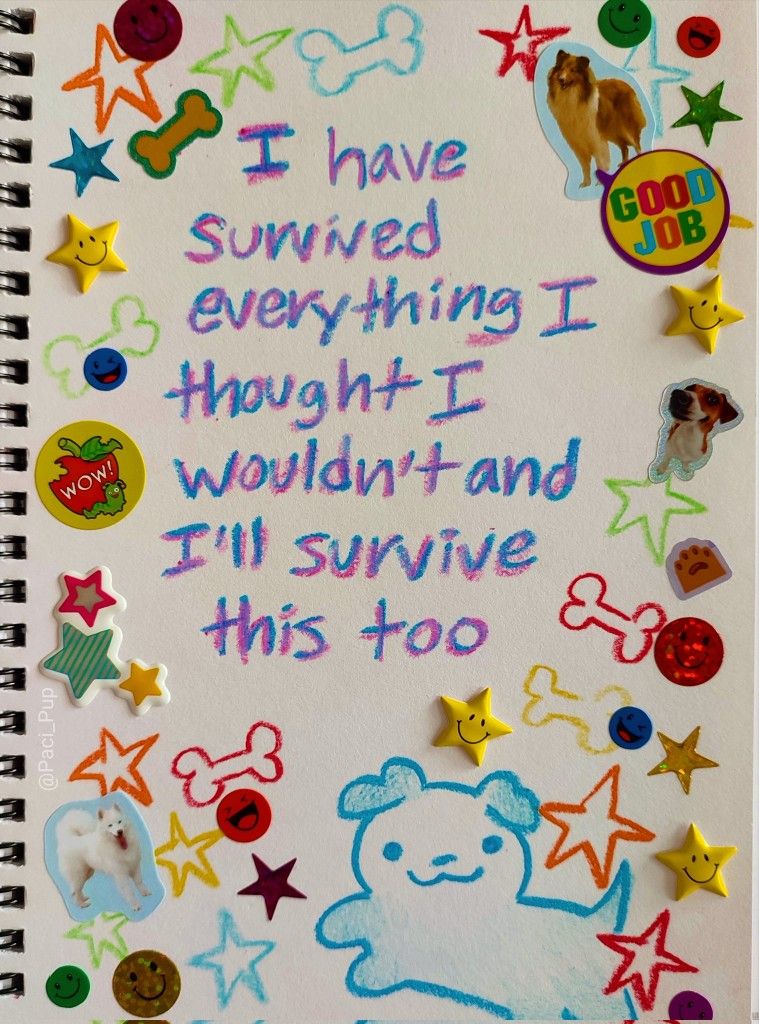 I have
survived
everything I
thought I
wouldn't and
I'll survive
this too
GOOD
JOB
WOW!
@Paci_Pup